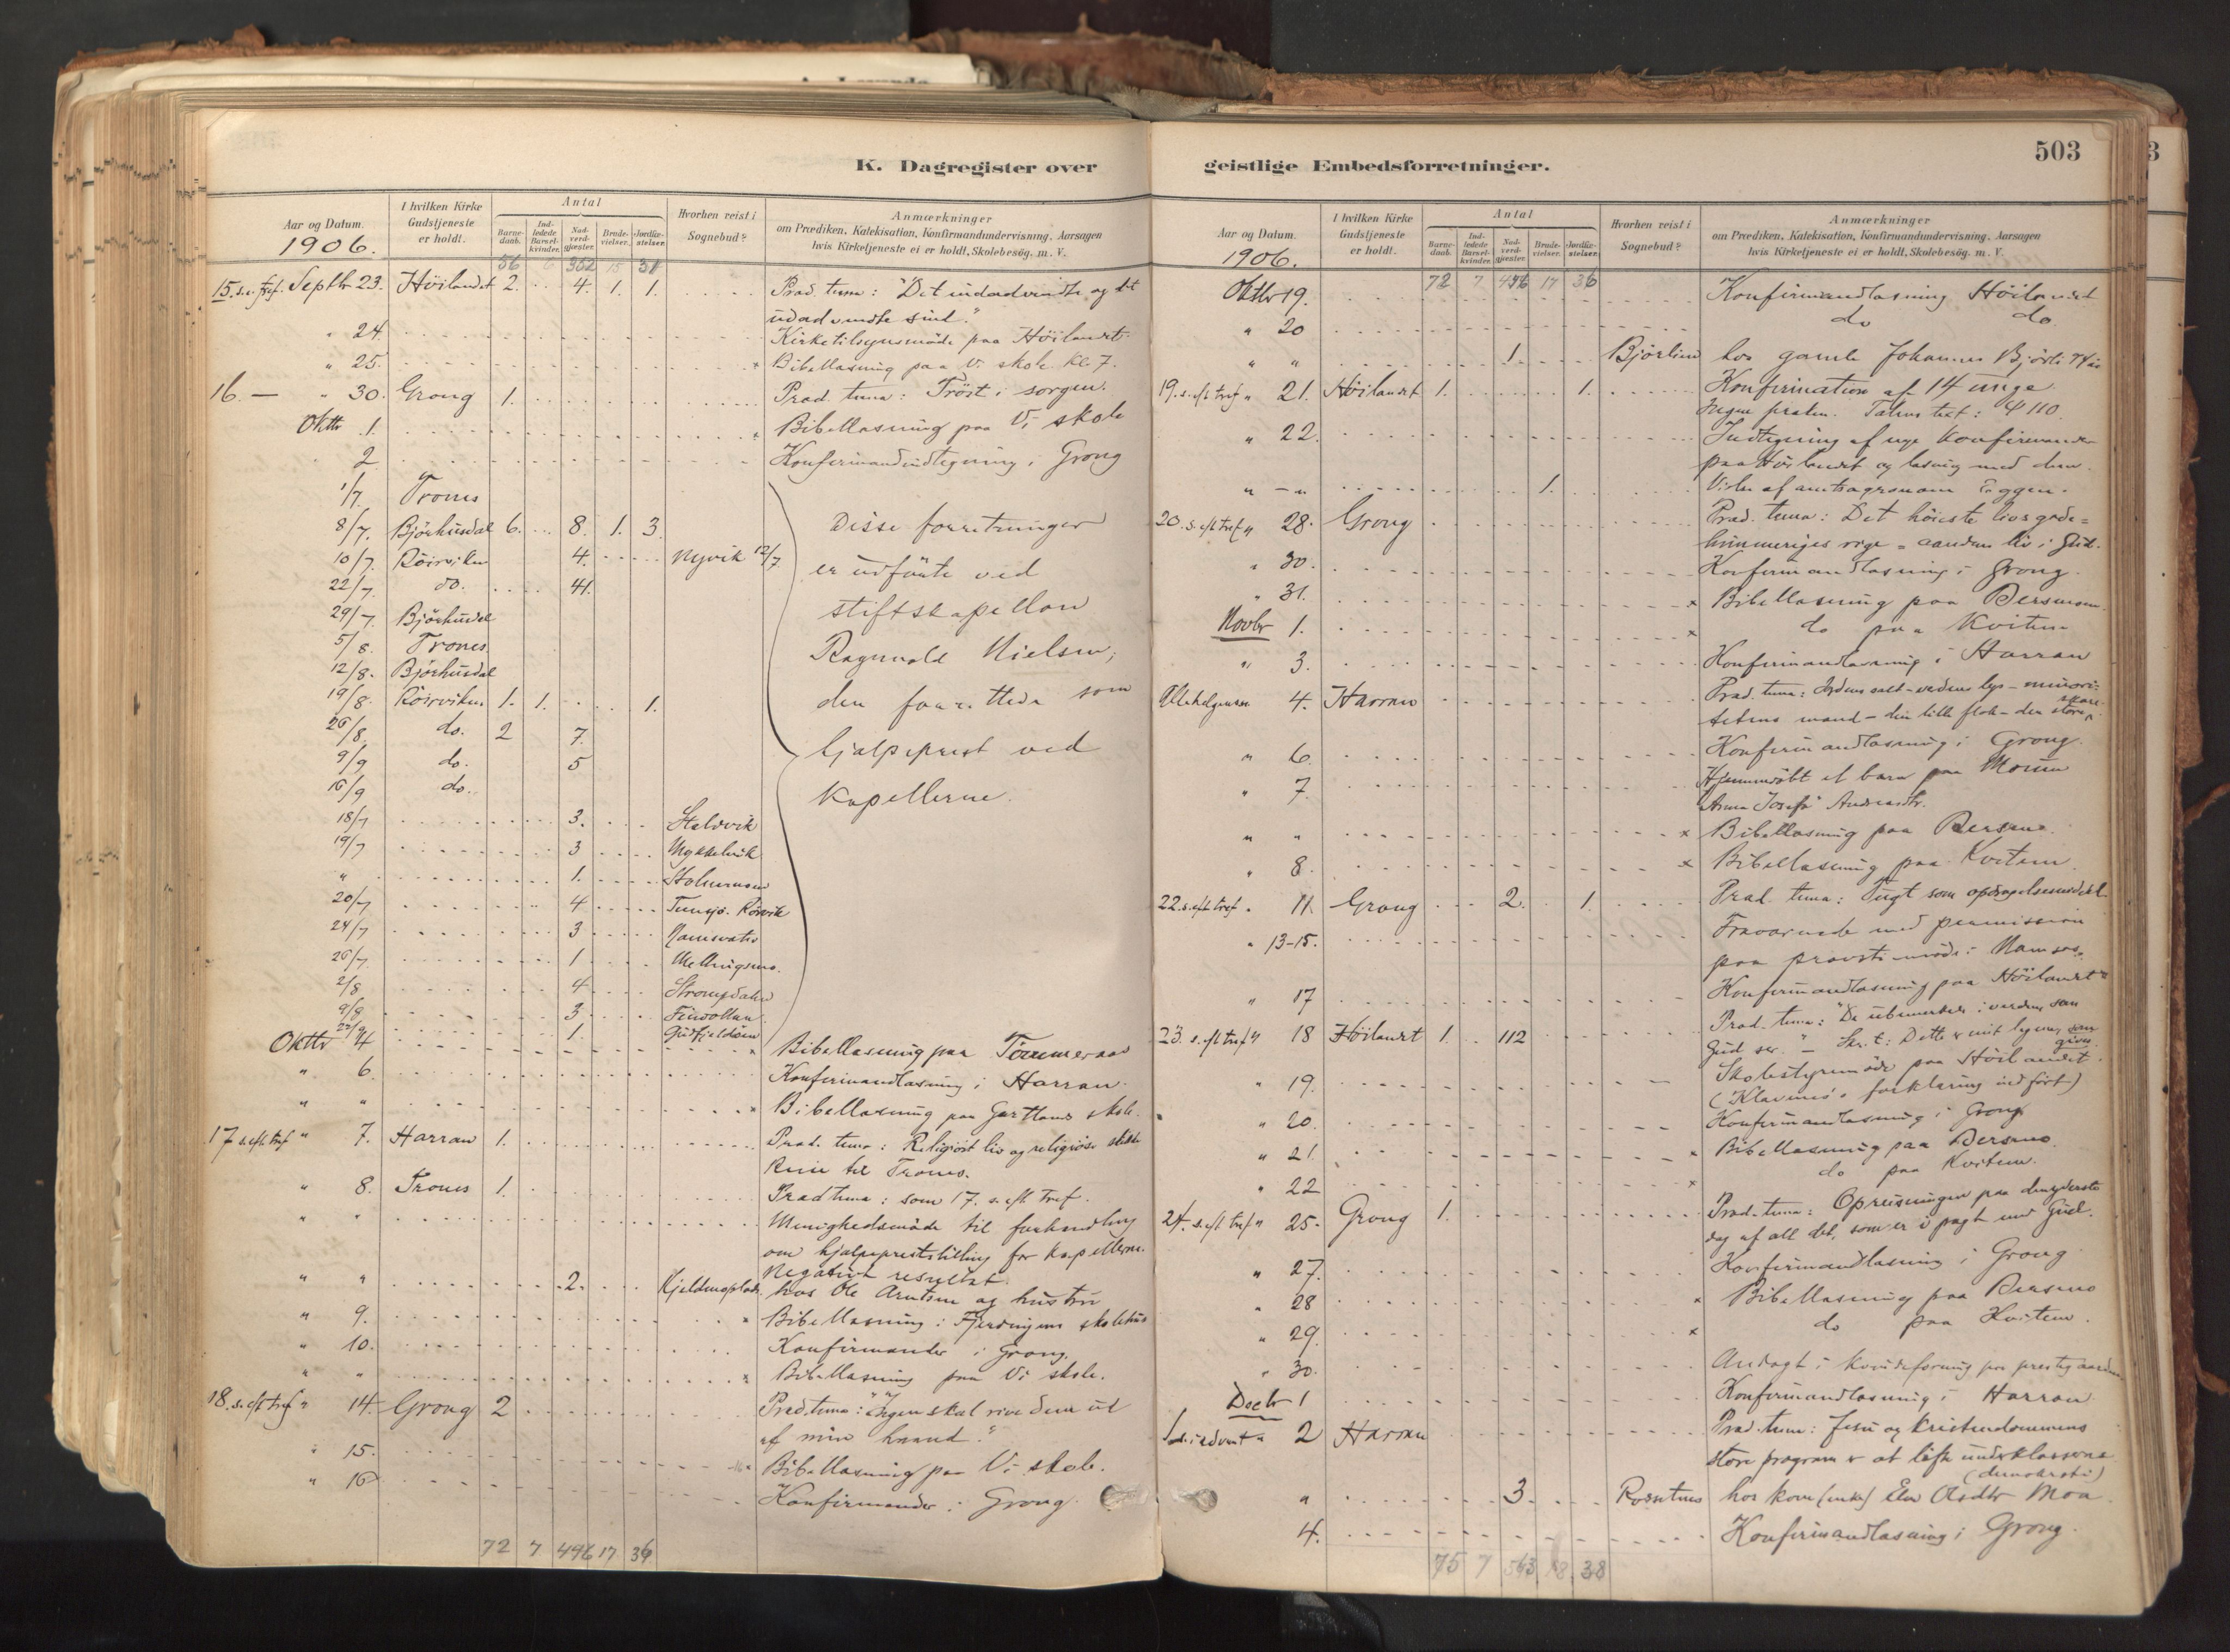 K. Dagregister over
Aar og Datum.
1906.
I hvilken Kirke Gudstjeneste er holdt.
Antal
Barne-daab.
Ind-ledede Barsel-kvinder.
Nad-verd-gjæster.
Brude-vielser.
Jordfæ-stelser.
Hvorhen reist i Sognebud?
Anmærkninger
om Prædiken, Katekisation, Konfirmandundervisning, Aarsagen
hvis Kirketjeneste ei er holdt, Skolebesøg. m. V.
56 6 352 15 31
15. s.e. tref. Septbr 23. Høilandet 2. 4. 1. 1. Præd. tema: "Det indadvendte og det
udadvendte sind."
" 24. Kirketilsynsmøde paa Høilandet.
" 25. × Bibellæsning paa Vi skole kl. 7.
16. — " 30. Grong 1. Præd. tema: Trøst i sorgen.
Oktbr 1. × Bibellæsning paa Vi skole
2 Konfirmandindtegning i Grong
1/7 Trones
8/7. Bjørhusdal 6. 8. 1. 3. Disse forretninger
10/7. Røirviken 4. Nyvik 12/7 er udførte ved
22/7 do. 41. stiftskapellan
29/7 Bjørhusdal
5/8. Trones. Ragnvald Nielsen,
12/8. Bjørhusdal
19/8. Røirviken 1. 1. 1. den forrettede som
26/8. do. 2 7.
9/9 do. 5 hjælpeprest ved
16/9 do. Kapellerne.
18/7 3. Staldvik
19/7 3
" 1.
20/7 4 Tunsjø. Rørvik
24/7 3 Namsvatn
26/7. 1
2/8 4
9/8 3.
22/9 1.
Oktbr 4 × Bibellæsning paa Tømmeraas
" 6. Konfirmandlæsning i Harran.
" " × Bibellæsning paa Gartlands skole.
17 s. eft. tref " 7. Harran 1. Præd. tema: Religiøst liv og religiøse
Reise til Trones.
" 8. Trones 1. Præd tema: som 17. s. eft. tref.
" " Menighedsmøde til forhandling
om hjælpeprestskilling for kapellerne.
Negativt resultat.
" " 2. hos Ole Arntsen og hustru
" 9. × Bibellæsning i Fjerdingens skolehus
" 10. Konfirmander i Grong.
" " × Bibellæsning paa Vi skole.
18. s. eft tref " 14. Grong 2 Præd. tema: "Ingen skal rive dem ud
af min haand."
" 15. Bibellæsning paa Vi skole.
" 16 Konfirmander i Grong.
72 7 496 17 36
503
geistlige Embedsforretninger.
Aar og Datum.
1906.
I hvilken Kirke Gudstjeneste er holdt.
Antal
Barne-daab.
Ind-ledede Barsel-kvinder.
Nad-verd-gjæster.
Brude-vielser.
Jordfæ-stelser.
Hvorhen reist i Sognebud?
Anmærkninger
om Prædiken, Katekisation, Konfirmandundervisning, Aarsagen
hvis Kirketjeneste ei er holdt, Skolebesøg. m. V.
72 7 496 17 36
Oktbr 19. Konfirmandlæsning Høilandet
" 20 do do.
" " 1. Bjørlien hos gamle Johannes Bjørli
19. s. eft tref " 21. Høilandet 1. 1. Konfirmation af 14 unge.
Ingen præken. Talens text: Ψ 110.
" 22. Indtegning af nye konfirmander
paa Høilandet og læsning med dem.
" — " 1. Vielse af amtsagronom Eggen.
20. s. eft tref " 28. Grong Præd. tema: Det høieste livsgode =
himmeriges rige = aandens liv i Gud.
" 30. Konfirmandlæsning i Grong.
" 31. × Bibellæsning paa Bersmoen.
Novbr 1. × do paa Kvitem
" 3. Konfirmandlæsning i Harran
Allehelgensd. 4. Harran Præd. tema: Jordens salt - verdens lys - minori-
tetens mand - den lille flok - den store skare.
" 6. Konfirmandlæsning i Grong.
" 7. Hjemmedøbt et barn paa Moum
Anna Josefa Andreasdtr.
" " × Bibellæsning paa Bersmo.
" 8. × Bibellæsning paa Kvitem.
22. s. eft tref " 11. Grong 2. 1. Præd. tema: Tugt som opdragelsesmiddel
" 13-15. Fraværende med permission
paa provstimøde i Namsos.
" 17 Konfirmandlæsning paa Høilandet
23. s. eft tref " 18 Høilandet 1. 112 Præd. tema: "De ubemerkede i verden, som
Gud ser." - Skr. t: Dette er mit legeme, som
gives
" 19. Skolestyremøde paa Høilandet.
forklaring indført)
" 20. Konfirmandlæsning i Grong
" 21. × Bibellæsning paa Bersmo.
" 22 × do paa Kvitem.
24. s. eft tref " 25. Grong 1. Præd. tema: Opreisningen paa den yderste
dag af alt det, som er i pagt med Gud.
" 27. Konfirmandlæsning i Grong
" 28 × Bibellæsning paa Bersmo
" 29. × do paa Kvitem.
" 30. Andagt i kvindeforening paa prestegaarden
Decbr 1 Konfirmandlæsning i Harran
1. s. i advent " 2 Harran Præd. tema: Jesu og kristendommens
store program er at løfte underklasserne
(demokrati)
" 3. Rosetnes hos kone (enke) Elen Olsdtr Moa.
4. Konfirmandlæsning i Grong.
75 7 563 18 38